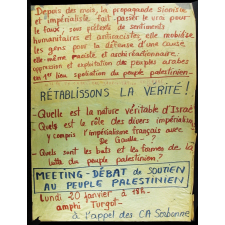 Depuis des mois, la propagande Sioniste
et impérialiste fait passer le vrai pour
le faux; sous prétexte de sentiments
humanitaires et antiracistes elle mobilise
les gens pour la défense d'une cause
elle-même raciste et archiréactionnaire:
oppression et exploitation des peuples arabes
en 1er lieu spoliation du peuple palestinien.
RÉTABLISSONS LA VÉRITÉ!
-Quelle est la nature véritable d'Israël
- Quels est le rôle des divers impérialismes
y compris l'impérialisme français avec
De Gaulle-?
- Quels sont les buts et les formes de la
lutte du peuple palestinien?
MEETING-DÉBAT de SOUTIEN
AU PEUPLE PALESTINIEN
Lundi 20 janvier à 18h-
amphi Turgot-
à l'appel des CA Sorbonne